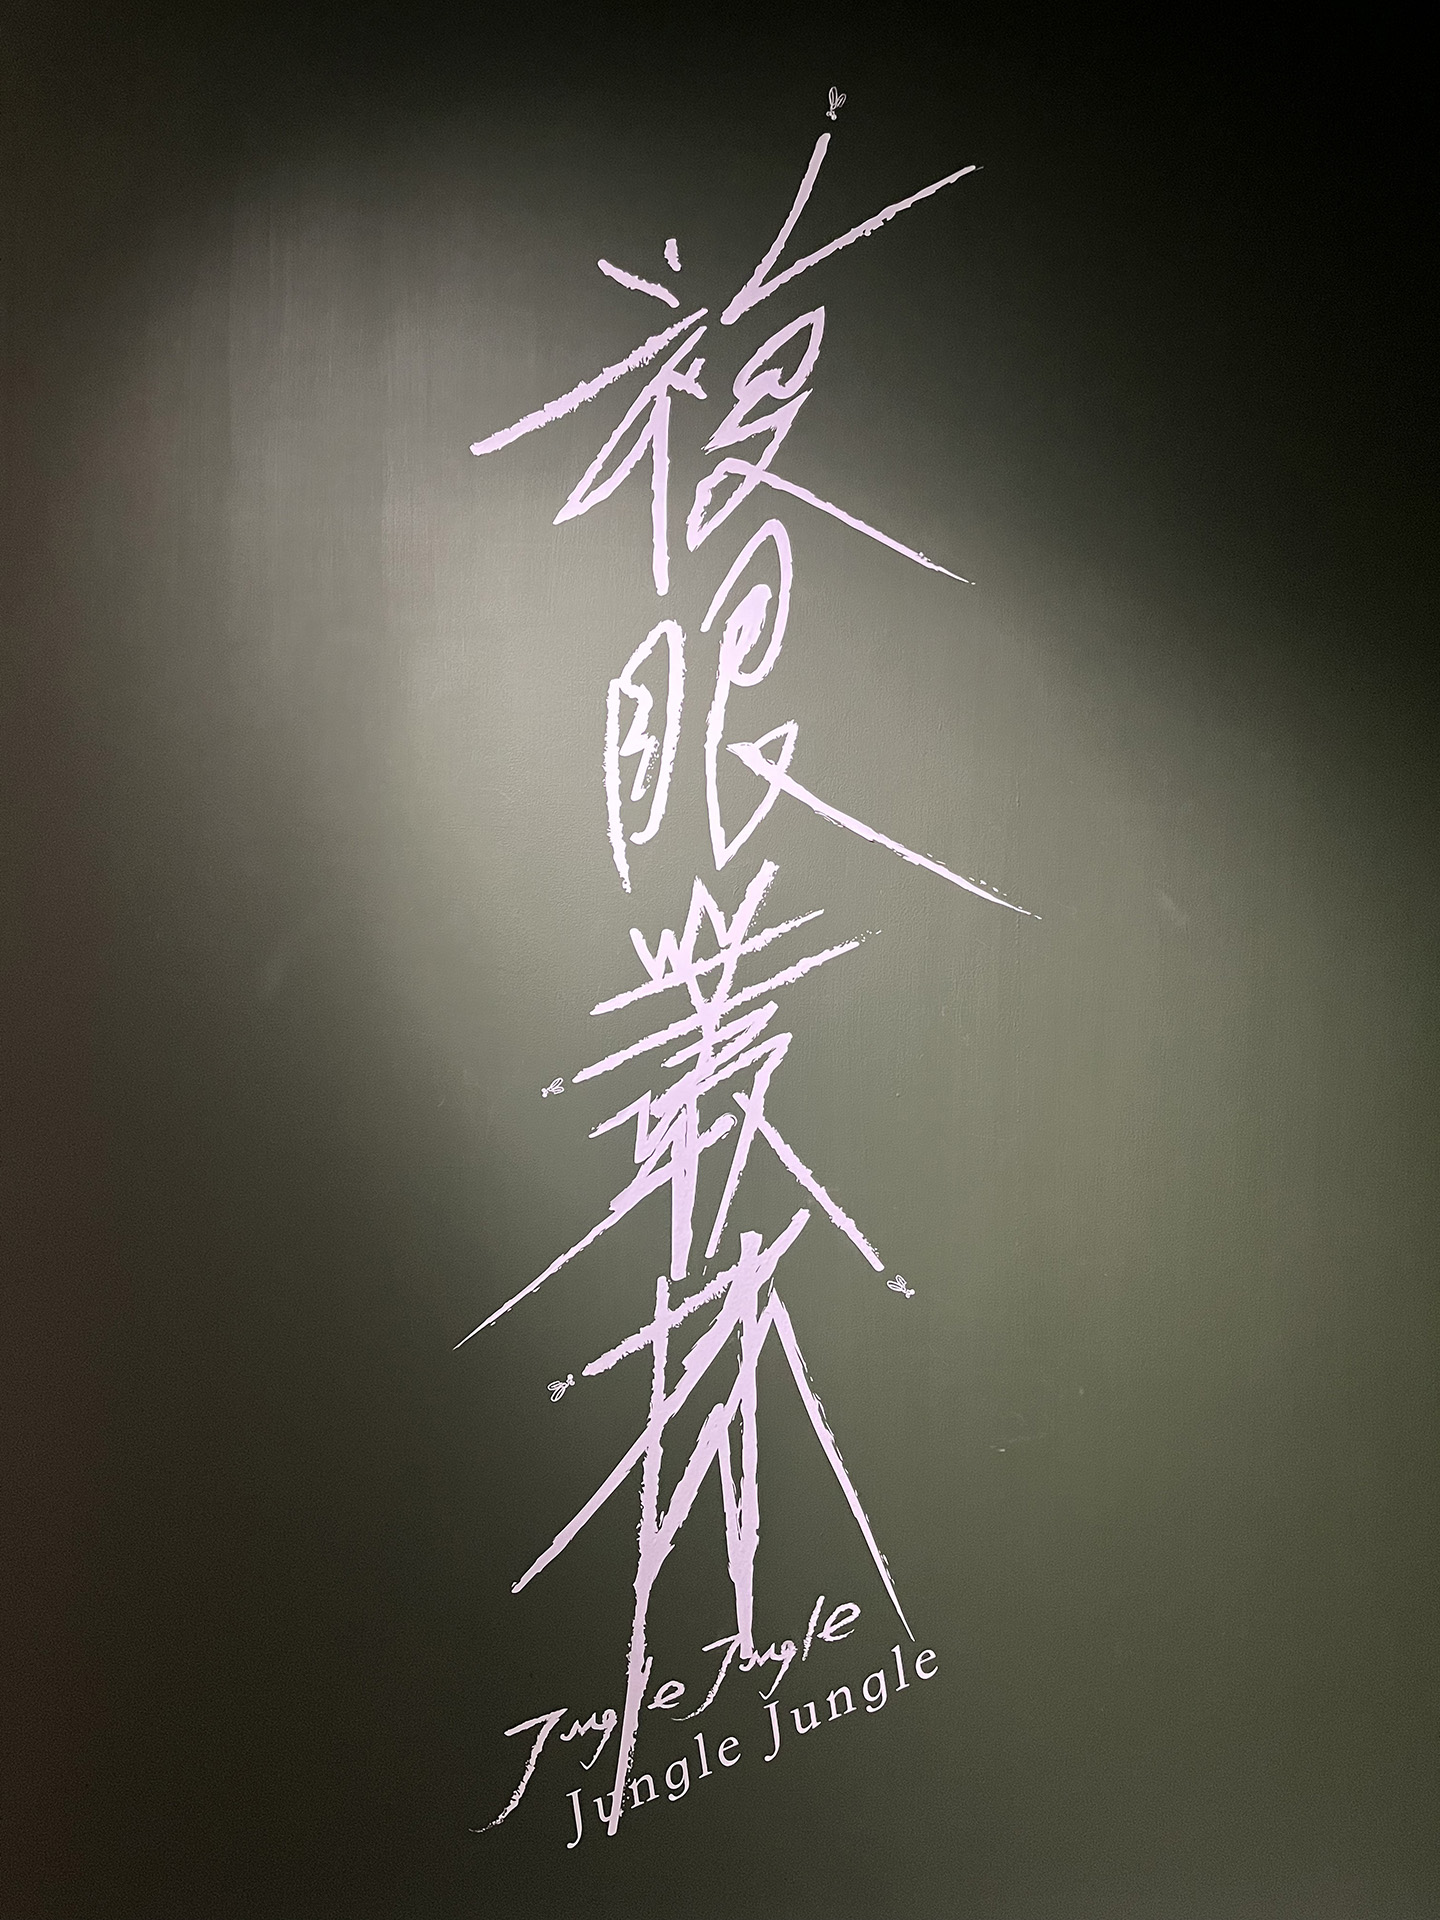 複眼叢林
Jungle Jungle
Jungle Jungle